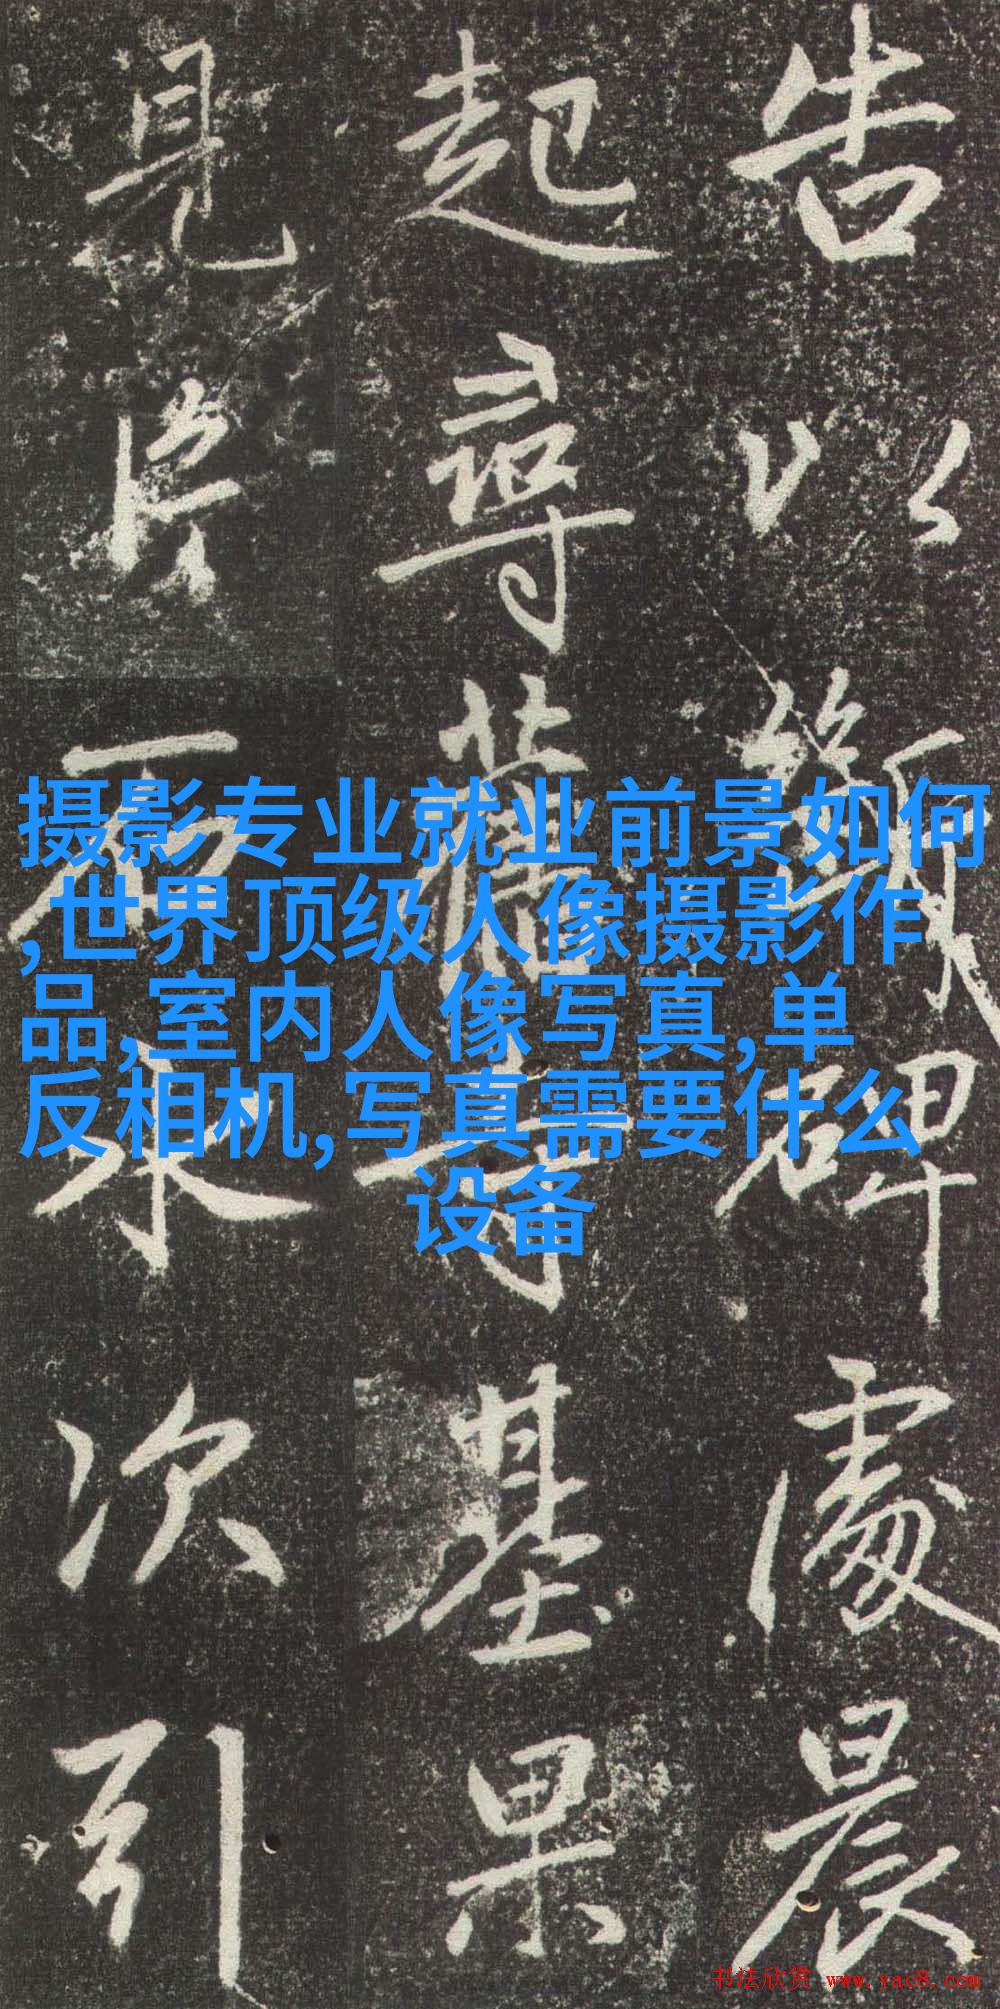 告以碑處晨
起尋舊寺基果
見片石永次引
摄影专业就业前景如何
,世界顶级人像摄影作
品,室内人像写真,单
反相机,写真需要什么
设备
书法欣赏 www.yac8.com